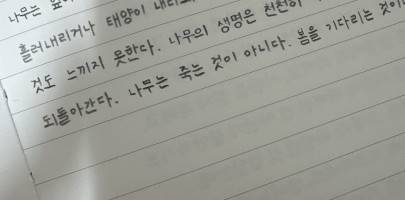 나무는
흘러내리거나 태양이
것도 느끼지 못한다. 나무의 생명은 천천히
되돌아간다. 나무는 죽는 것이 아니다. 봄을 기다리는 것이